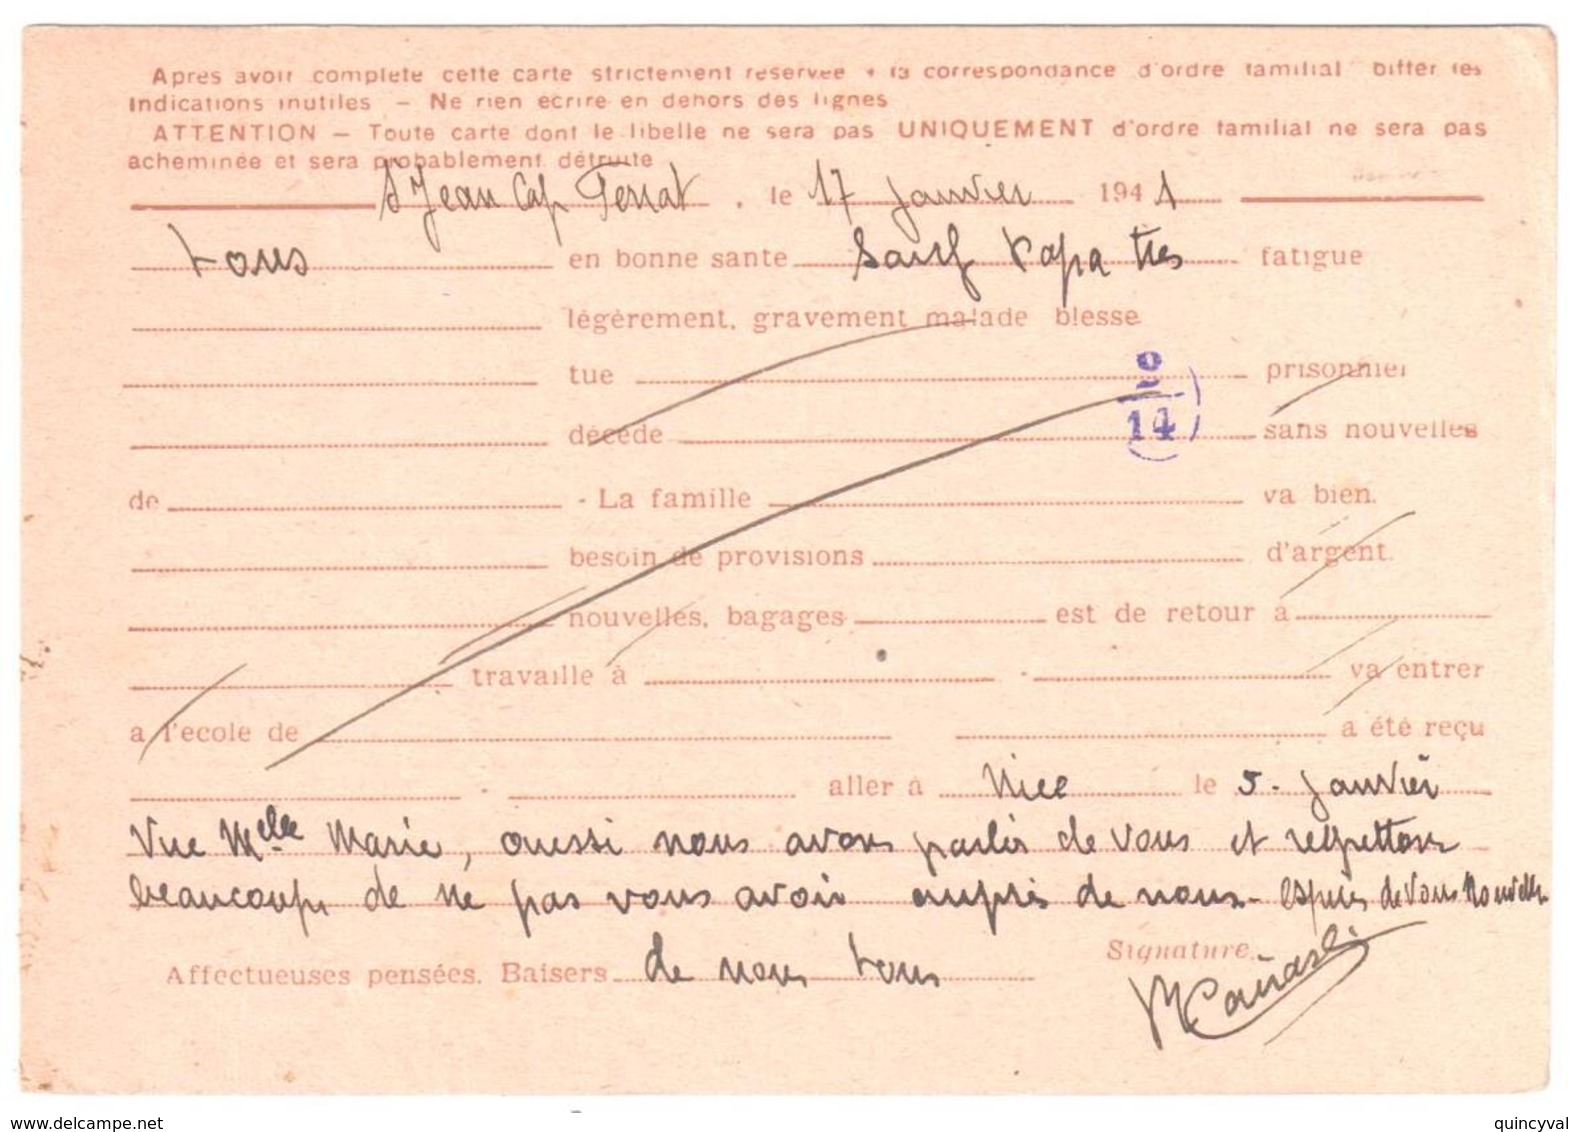 Après avoir complété cette carte strictement réservée à la correspondance d'ordre familial biffer les
indications inutiles – Ne rien écrire en dehors des lignes
ATTENTION – Toute carte dont le libellé ne sera pas UNIQUEMENT d'ordre familial ne sera pas
acheminée et sera probablement détruite
St Jean Cap Ferrat, le 17 janvier 1941
tous en bonne santé sauf Papa très fatigué
légèrement, gravement malade blessé
tué prisonnier
décédé sans nouvelles
de - La famille va bien.
besoin de provisions d'argent.
nouvelles, bagages est de retour à
travaille à va entrer
à l'école de a été reçu
aller à Nice le 5. janvier
Vue Melle Marie, aussi nous avons parlés de vous et regrettons
beaucoup de ne pas vous avoir auprès de nous - de vous nouvelles
Affectueuses pensées. Baisers de nous tous
Signature.
2
14
www.delcampe.net
quincyval